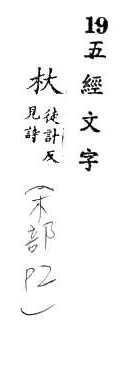 19
五經文字
杕 徒計反
見詩
(木部
P2)